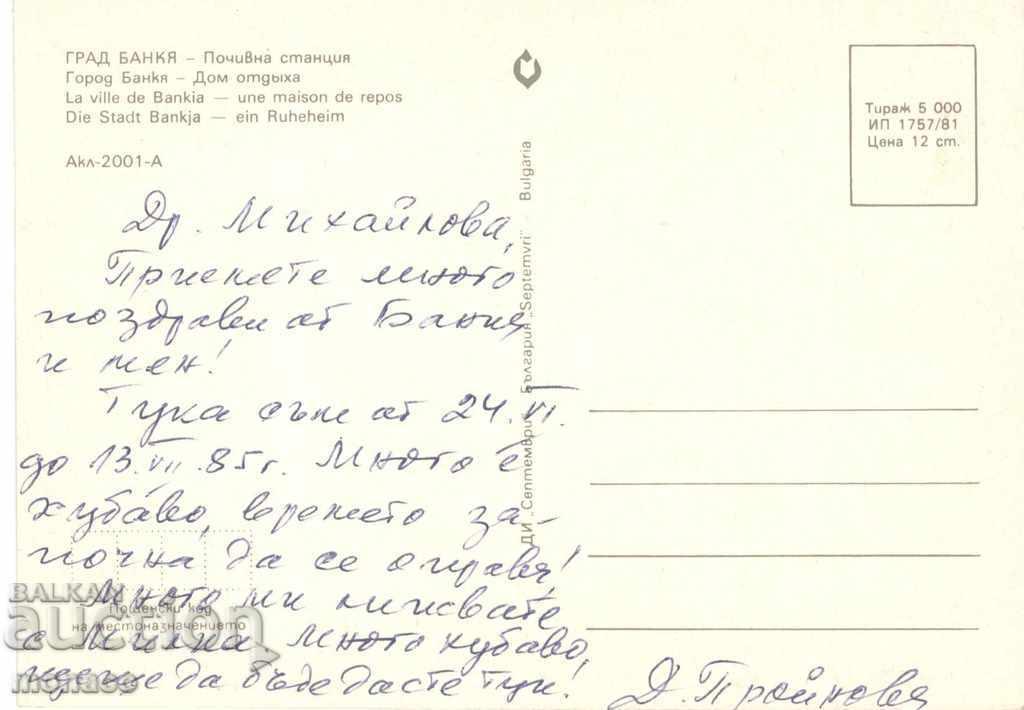 ГРАД БАНКЯ – Почивна станция
Город Банкя – Дом отдыха
La ville de Bankia — une maison de repos
Die Stadt Bankja — ein Ruheheim
Акл-2001-А
Тираж 5 000
ИП 1757/81
Цена 12 ст.
ДИ „Септември" България „Septemvri" Bulgaria
Др. Михайлова,
Приемете много
поздрави от Банкя
и мен!
Тука съм от 24.VI.
до 13.VII.85г. Много е
хубаво, времето за-
почна да се оправя!
Много ми липсвате
с Милка, много хубаво,
щеше да бъде да сте тук!
Д. Тройнова
Пощенски код
на местоназначението
BALKAN
auction